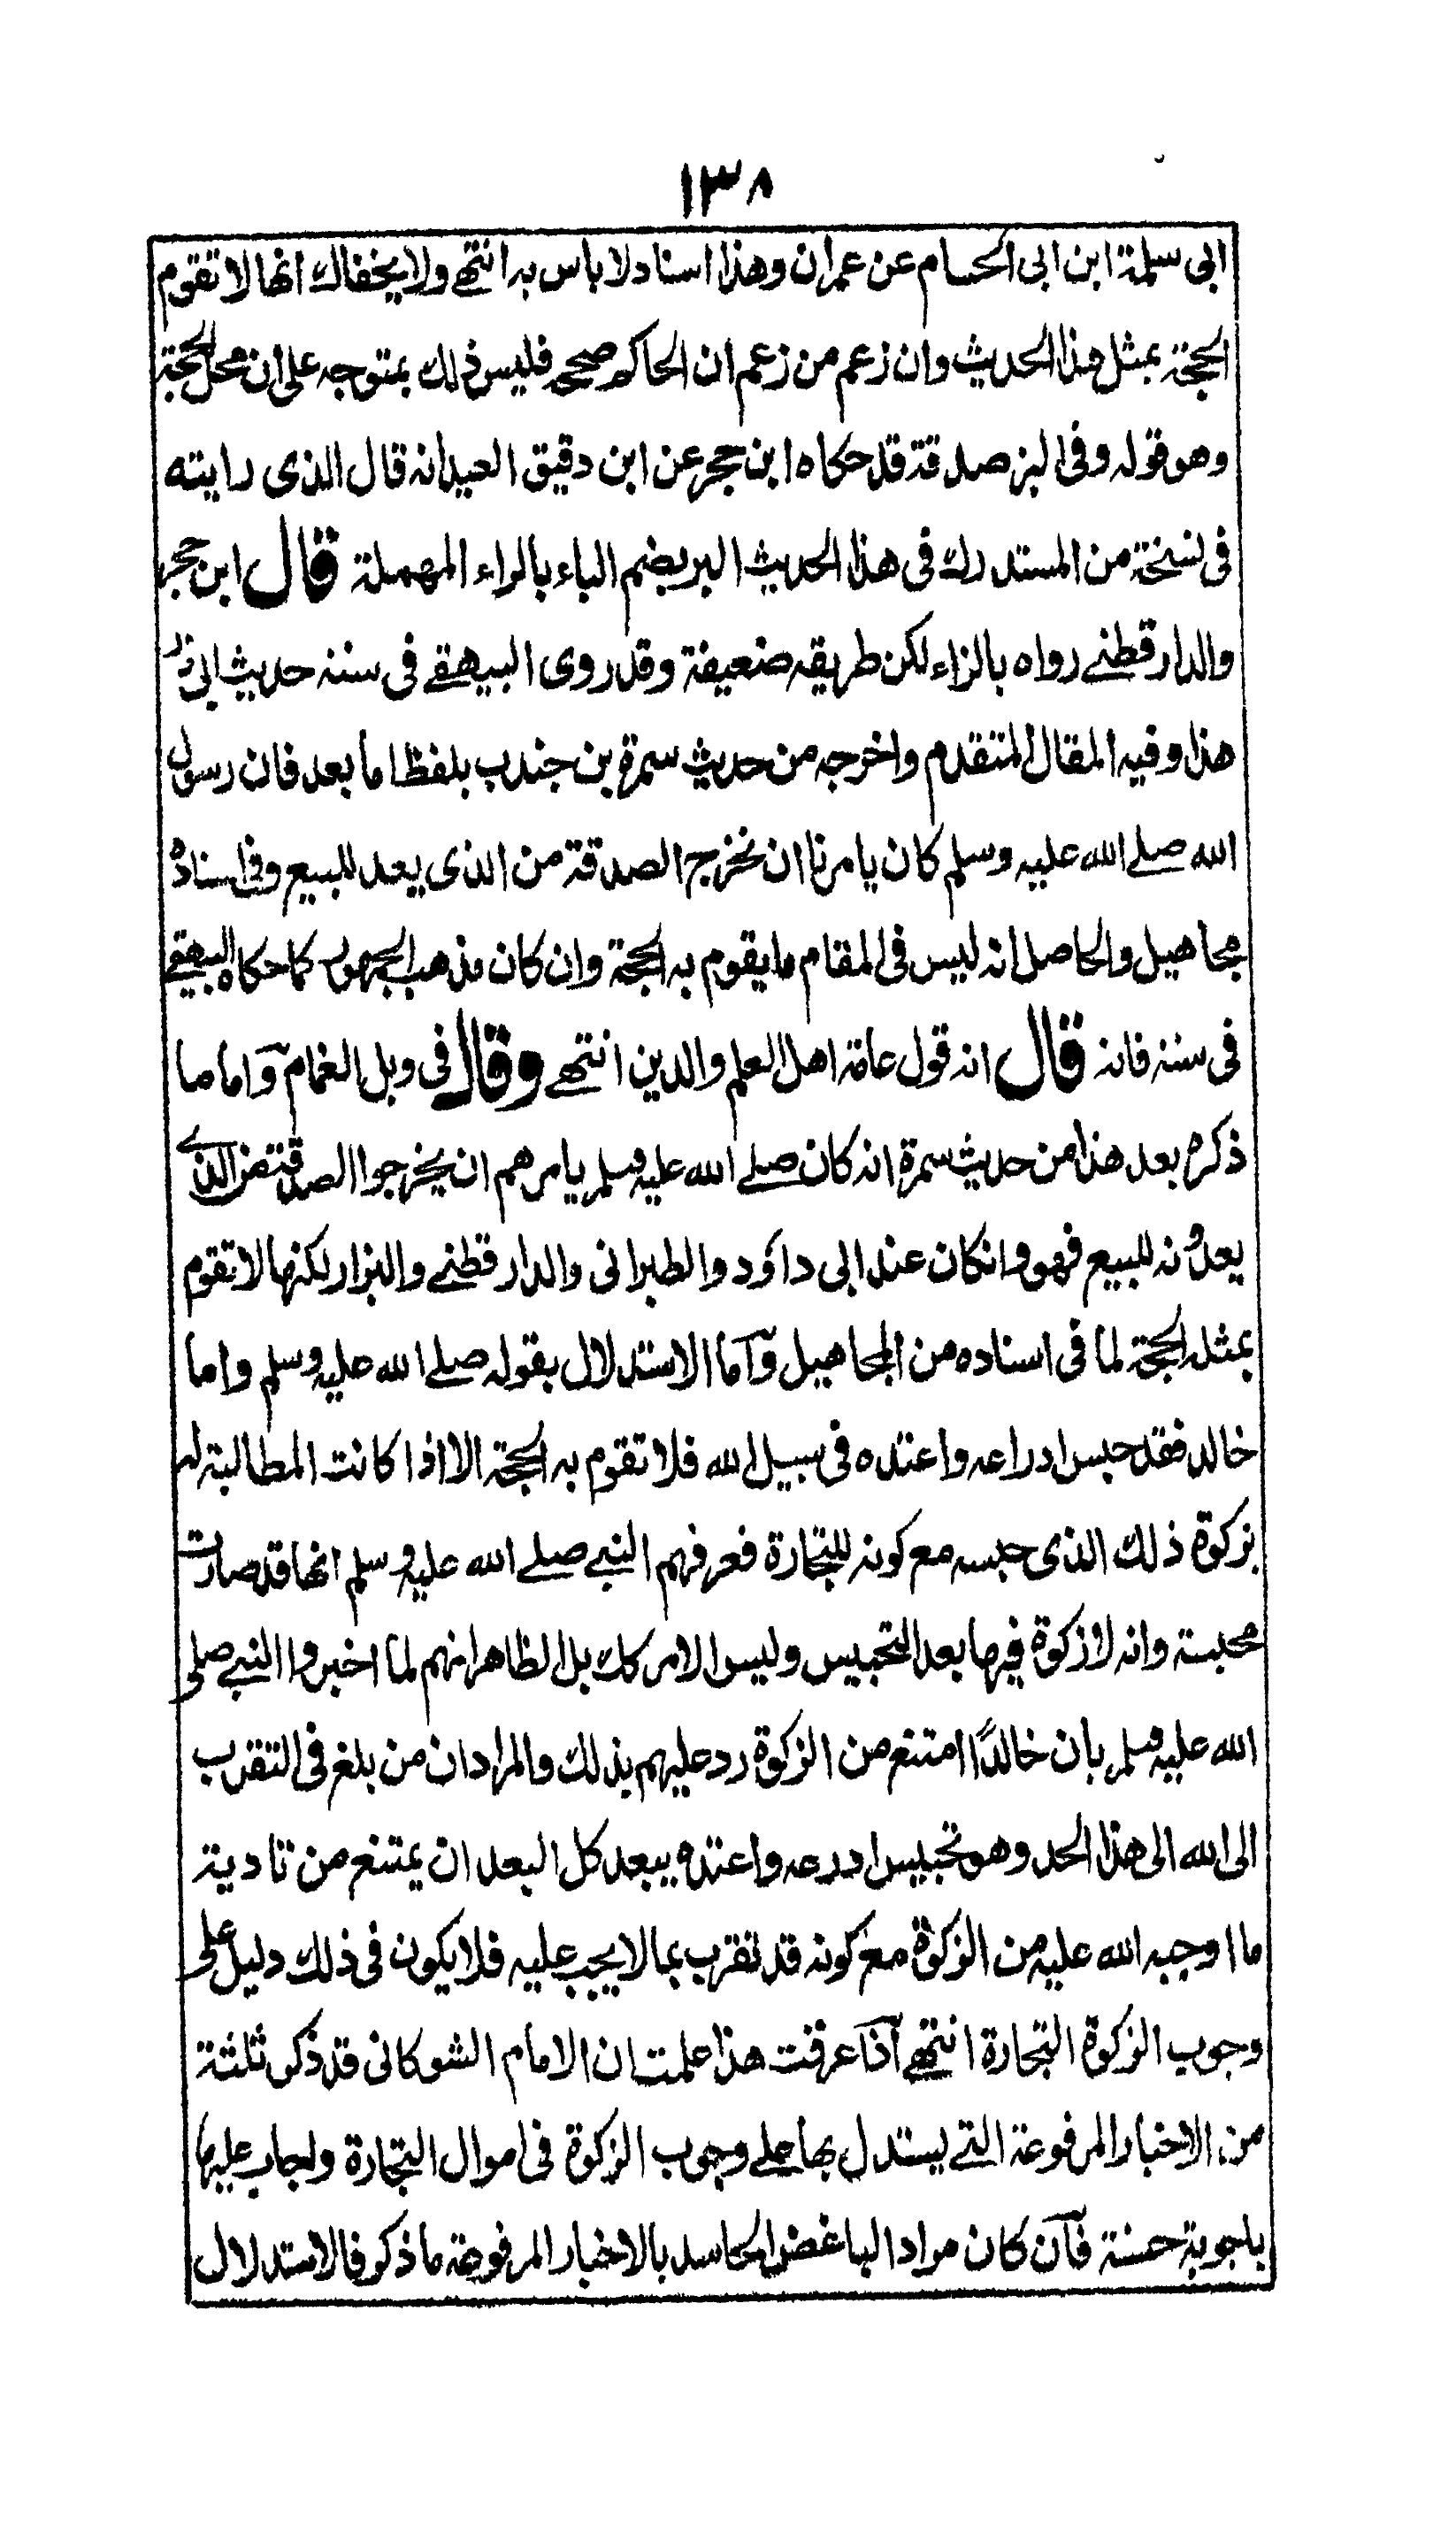 ١٣٨
ابی سلمة ابن ابی الحسام عن عمران وهذا اسناد لا باس به انتهے ولا یخفاك انها لا تقوم
الحجة بمثل هذا الحدیث وان زعم من زعم ان الحاکم صححه فلیس ذلك بمتوجه علی ان محل الحجة
وهو قوله وفی البز صدقة قد حکاه ابن حجر عن ابن دقیق العید انه قال الذی رایته
فی نسخة من المستدرك فی هذا الحدیث البر بضم الباء بالراء المهملة قال ابن حجر
والدارقطنے رواه بالزاء لکن طریقه ضعیفة وقد روی البیهقے فی سننه حدیث ابی ذر
هذا وفیه المقال المتقدم واخرجه من حدیث سمرة بن جندب بلفظ اما بعد فان رسول
الله صلے الله علیه وسلم کان یامرنا ان نخرج الصدقة من الذی یعد للبیع وفی اسناده
مجاهیل والحاصل انه لیس فی المقام ما یقوم به الحجة وان کان مذهب الجمهور کما حکاه البیهقے
فی سننه فانه قال انه قول عامة اهل العلم والدین انتهے وقال فی وبل الغمام وَاما ما
ذکره بعد هذا من حدیث سمرة انه کان صلے الله علیه وسلم یامرهم ان یخرجوا الصدقة من الذے
یعدونه للبیع فهو وانکان عند ابی داؤد والطبرانی والدارقطنے والبزار لکنها لا تقوم
بمثله الحجة لما فی اسناده من المجاهیل وَاما الاستدلال بقوله صلے الله علیه وسلم واما
خالد فقد حبس ادراعه واعتده فی سبیل الله فلا تقوم به الحجة الا اذا کانت المطالبة له
بزکوة ذلك الذی حبسه مع کونه للتجارة فعرفهم النبے صلے الله علیه وسلم انها قد صارت
محبسة وانه لا زکوة فیها بعد التحبیس ولیس الامر کك بل الظاهر انهم لما اخبروا النبے صلی
الله علیه وسلم بان خالدًا امتنع من الزکوة رد علیهم بذلك والمراد ان من بلغ فی التقرب
الی الله الی هذا الحد وهو تحبیس ادرعه واعتده یبعد کل البعد ان یمتنع من تادیة
ما اوجبه الله علیه من الزکوة مع کونه قد تقرب بما لا یجب علیه فلا یکون فی ذلك دلیل علی
وجوب الزکوة التجارة انتهے آذا عرفت هذا علمت ان الامام الشوکانی قد ذکر ثلثة
من الاخبار المرفوعة التے یستدل بها علے وجوب الزکوة فی اموال التجارة واجاب علیها
باجوبة حسنة فآن کان مراد الباغض الحاسد بالاخبار المرفوعة ما ذکر فالاستدلال